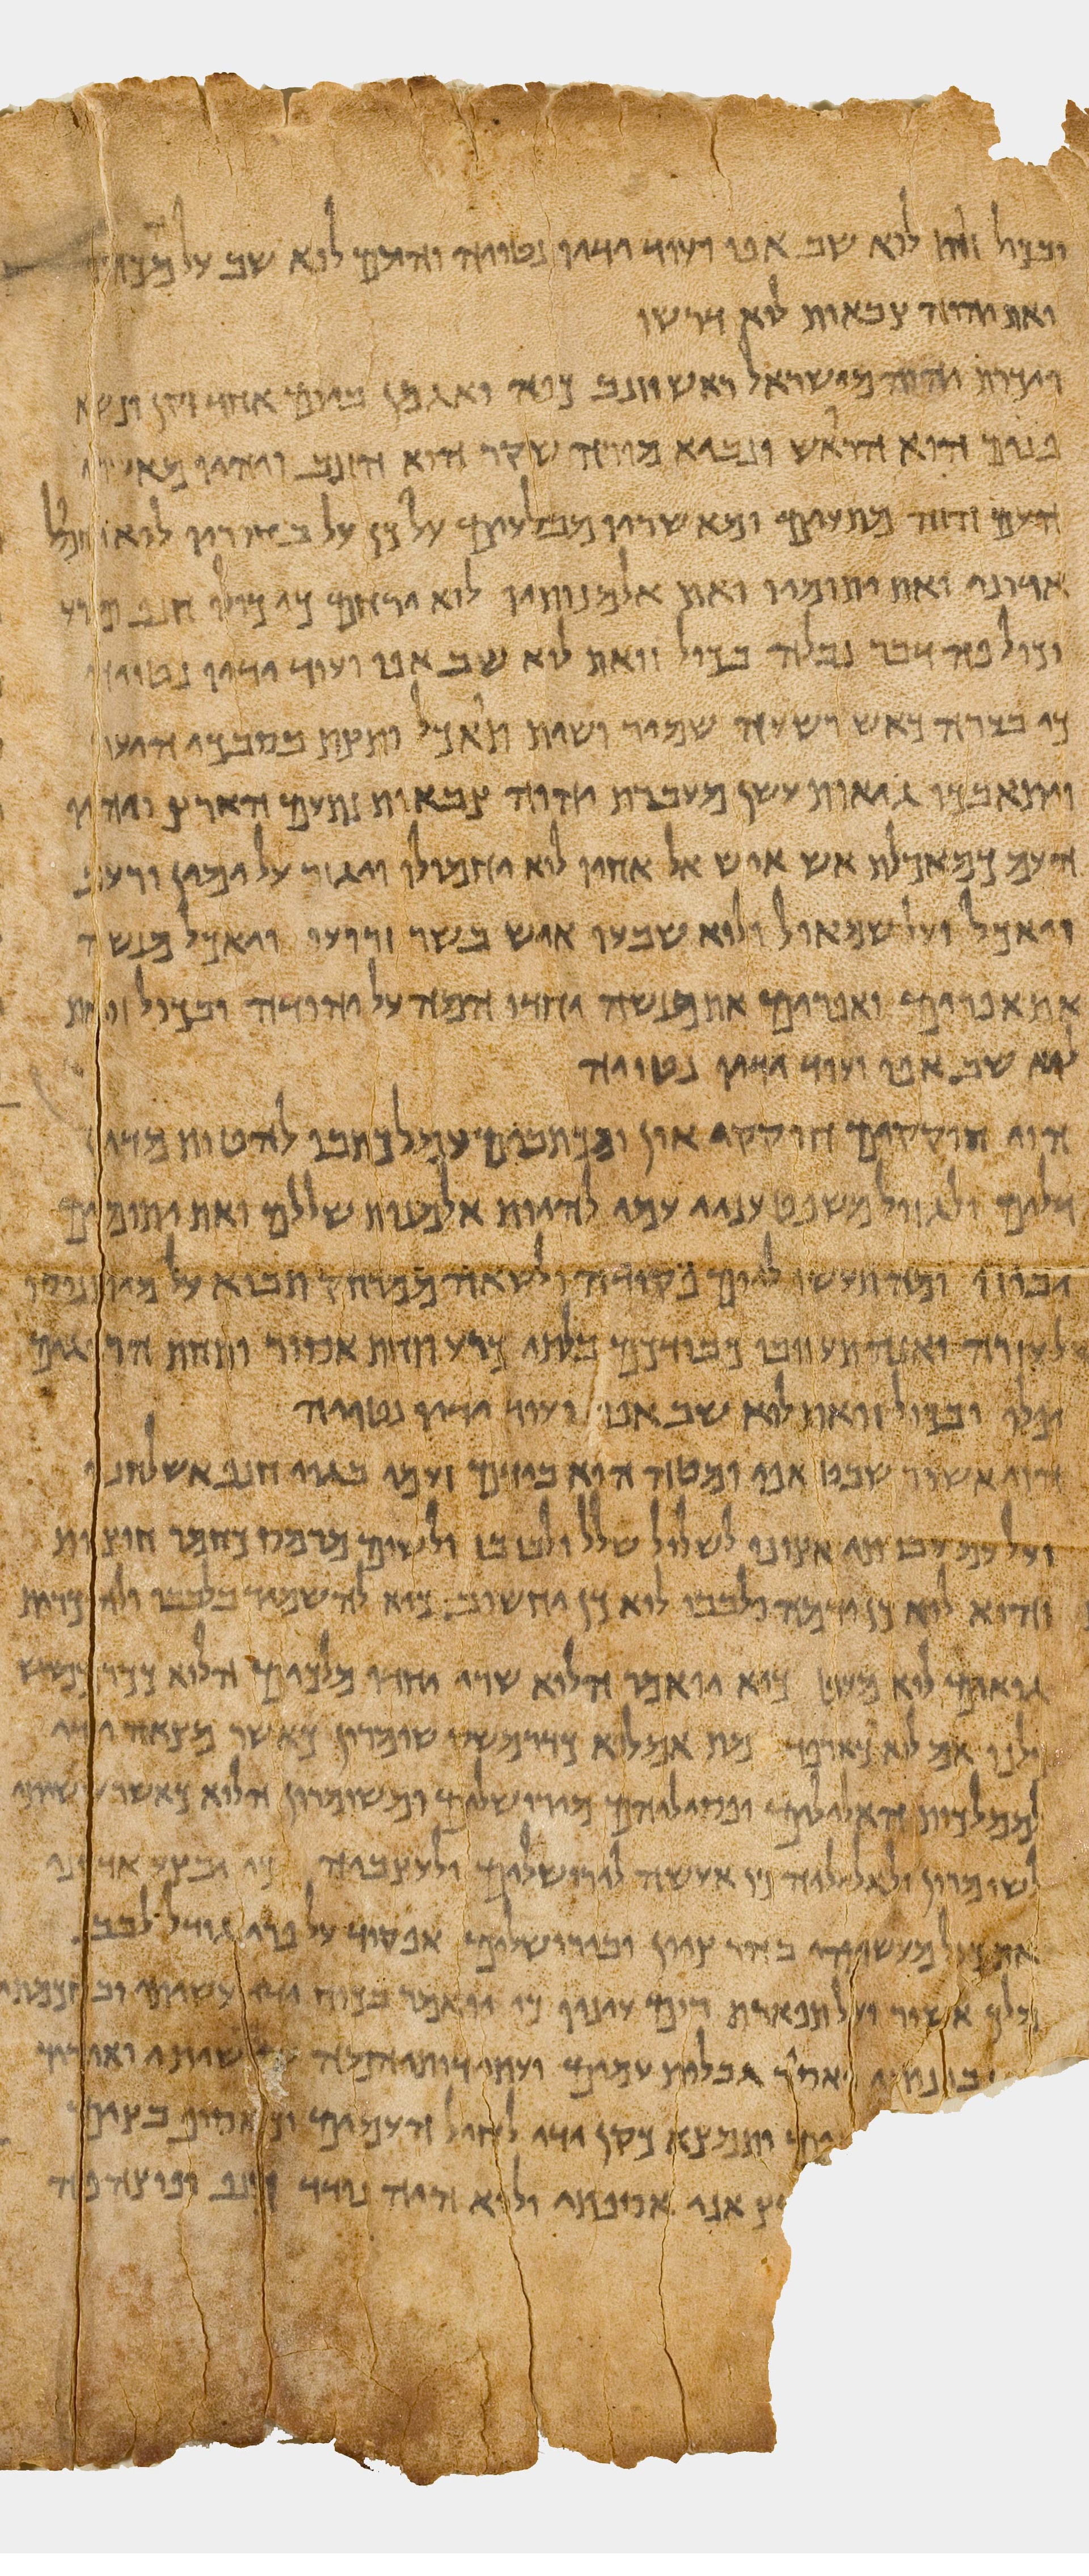 ובכול זות לוא שב אפו ועוד ידיו נטויה והעם לוא שב על מכהו
ואת יהוה צבאות לוא דרשו
ויכרת יהוה מישראל ראש וזנב כפה ואגמן ביום אחד זקן ונשא
פנים הוא הראש ונביא מורה שקר הוא הזנב ויהיו מאשרי
העם הזה מתעים ומאשריו מבלעים על כן על בחוריו לוא יחמל
אדוני ואת יתומיו ואת אלמנותיו לוא ירחם כי כולו חנף מרע
וכול פה דבר נבלה בכול זואת לוא שב אפו ועוד ידיו נטויה
כי בערה כאש רשעה שמיר ושית תאכל ותצת בסבכי היער
ויתאבכו גאות עשן מעברת יהוה צבאות נתעם הארץ ויהי
העם כמאכלת אש איש אל אחיו לוא יחמולו ויגזר על ימין ורעב
ויאכל ועל שמאול ולוא שבעו איש בשר זרועו יואכל מנשה
את אפרים ואפרים את מנשה יחדו המה על יהודה ובכול זואת
לוא שב אפו ועוד ידיו נטויה
הוי חוקקים חוקקי און ומכתבים עמל כתבו להטות מדין
דלים ולגזול משפט עניי עמי להיות אלמנות שללם ואת יתומים
יבוזו ומה תעשו ליום פקודה ולשאה ממרחק תבוא על מי תנוסו
לעזרה ואנה תעזובו כבודכם בלתי כרע תחת אסיר ותחת הרוגים
יפלו ובכול זואת לוא שב אפו ועוד ידיו נטויה
הוי אשור שבט אפי ומטה הוא בידם זעמי בגוי חנף אשלחנו
ועל עם עברתי אצונו לשלול שלל ולבז בז ולשים מרמס כחמר חוצות
והוא לוא כן ידמה ולבבו לוא כן יחשוב כיא להשמיד בלבבו ולהכרית
גואים לוא מעט כיא יואמר הלוא שרי יחדו מלכים הלוא ככרכמיש
כלנו אם לא כארפד חמת אם לוא כדרמשק שומרון כאשר מצאה ידי
לממלכות האלילים ופסיליהם מירושלים ומשומרון הלוא כאשר עשיתי
לשומרון ולאליליה כן אעשה לירושלים ולעצביה כי יבצע אדוני
את כול מעשיהו בהר ציון ובירושלים אפקוד על פרי גודל לבב
מלך אשור ועל תפארת רום עיניו כי יואמר בכוח ידי עשיתי ובחכמתי
ואסיר גבלות עמים ועתידותיהמה שושתי ואוריד
ותמצא כקן ידי לחיל העמים וכאסוף בצים
אני אסיפתי ולוא היה נודד כנף ופוצה פה